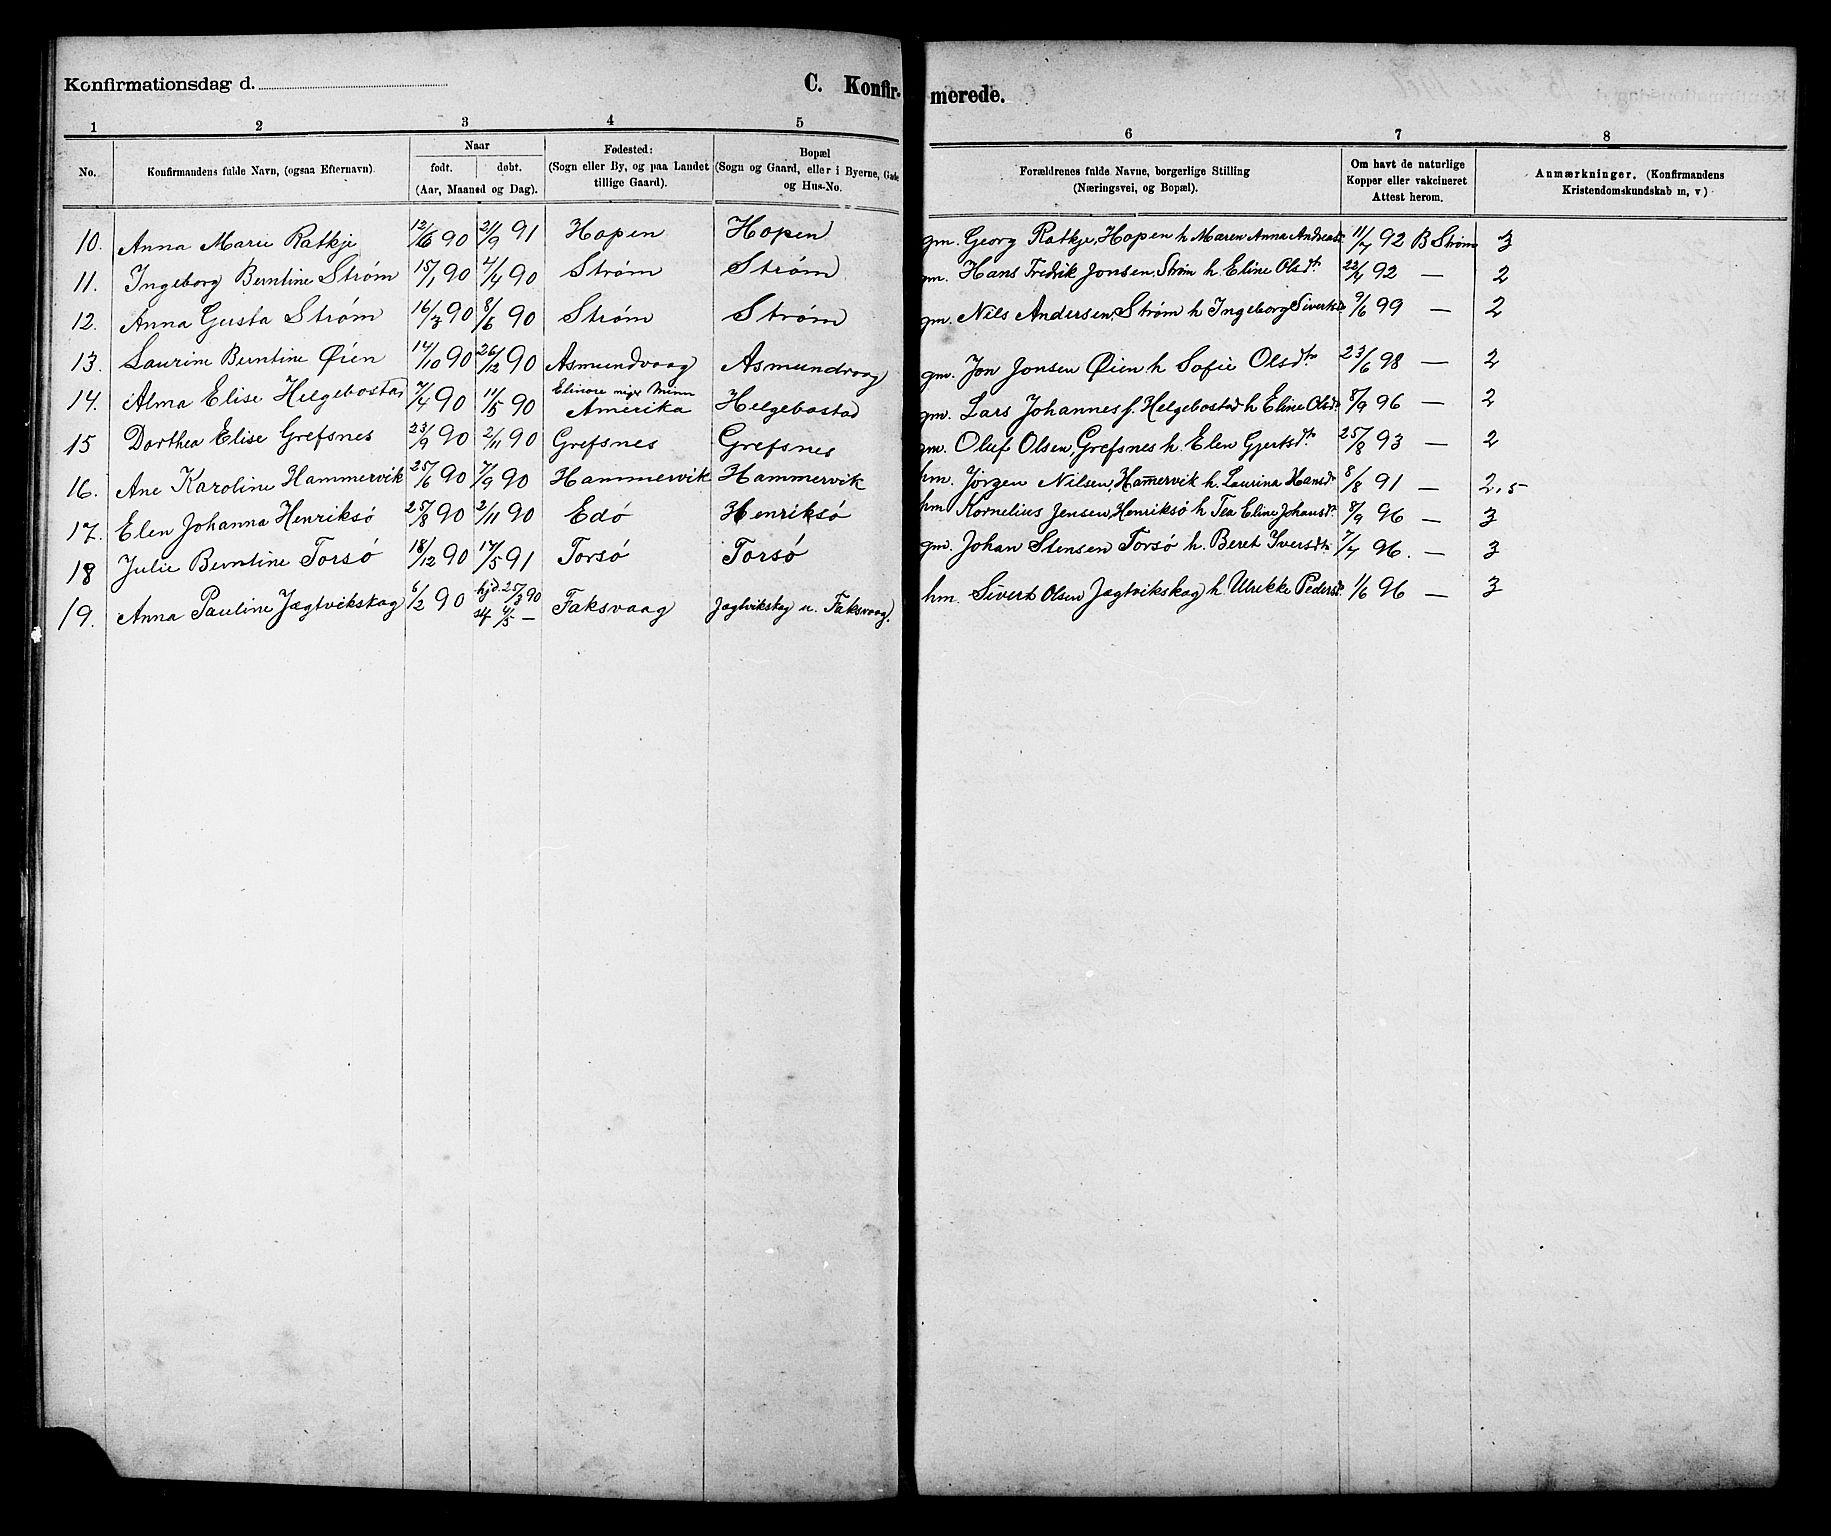 Konfirmationsdag d. C. Konfir- merede.
1 2 3 4 5 6 7 8
No. Konfirmandens fulde Navn, (ogsaa Efternavn). Naar født. døbt. (Aar, Maaned og Dag). Fødested: (Sogn eller By, og paa Landet tillige Gaard). Bopæl (Sogn og Gaard, eller i Byerne, Gade og Hus-No. Forældrenes fulde Navne, borgerlige Stilling (Næringsvei, og Bopæl). Om havt de naturlige Kopper eller vakcineret Attest herom. Anmærkninger. (Konfirmandens Kristendomskundskab m, v)
10. Anna Marie Ratkje 12/6 90 21/9 91 Hopen Hopen gm. Georg Ratkje, Hopen h Maren Anna Andreasdt 11/7 92 B Strøm 3
11. Ingeborg Berntine Strøm 15/1 90 4/4 90 Strøm Strøm gm. Hans Fredrik Jonsen, Strøm h Eline Olsdtr 22/4 92 — 2
12. Anna Gusta Strøm 16/3 90 8/6 90 Strøm Strøm gm. Nils Andersen, Strøm h Ingeborg Sivertsd 9/6 99 — 2
13. Laurine Berntine Øien 14/10 90 26/12 90 Asmundvaag Asmundvaag gm. Jon Jonsen Øien h Sofie Olsdtr 23/6 98 — 2
14. Alma Elise Helgebostad 7/4 90 11/5 90 Minn Amerika Helgebostad gm. Lars Johannes f. Helgebostad h Eline Olsdt 8/9 96 — 2
15 Dorthea Elise Grefsnes 23/9 90 2/11 90 Grefsnes Grefsnes gm. Oluf Olsen, Grefsnes h. Elen Gjertsdtr 25/8 93 — 2
16. Ane Karoline Hammervik 25/6 90 7/9 90 Hammervik Hammervik hm. Jörgen Nilsen, Hammervik h Laurina Hansdt 8/8 91 — 2,5
17. Elen Johanna Henriksö 25/8 90 2/11 90 Edö Henriksö hm Kornelius Jensen, Henriksö h Tea Eline Johansdt 8/9 96 — 3
18 Julie Berntine Torsö 18/12 90 17/5 91 Torsö Torsö gm. Johan Stensen Torsö h. Beret Iversdtr 7/7 96. — 3
19. Anna Pauline Jægtvikskag 6/2 90 hjd. 25/3 90 st 4/5 — Faksvaag Jægtvikskag u. Faksvaag. hm. Sivert Olsen Jægtvikskag h Ulrikke Pedersdt. 1/6 96 — 3